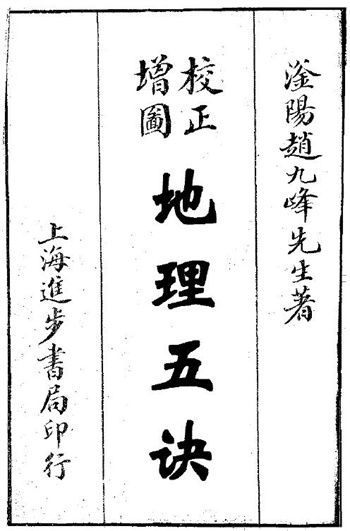 滏陽趙九峰先生著
校正
增圖
地理五訣
上海進步書局印行